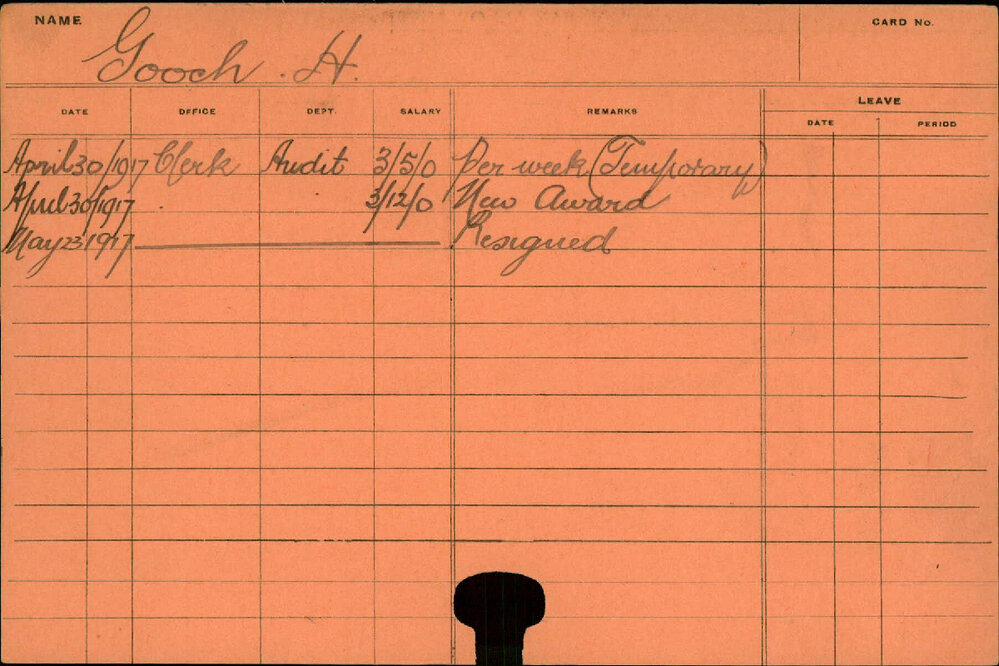 NAME CARD No.
Gooch . H.
DATE OFFICE DEPT. SALARY REMARKS LEAVE
DATE PERIOD
April 30/1917 Clerk Audit 3/5/0 Per week (Temporary)
April 30/1917 3/12/0 New Award
May 23 1917 Resigned